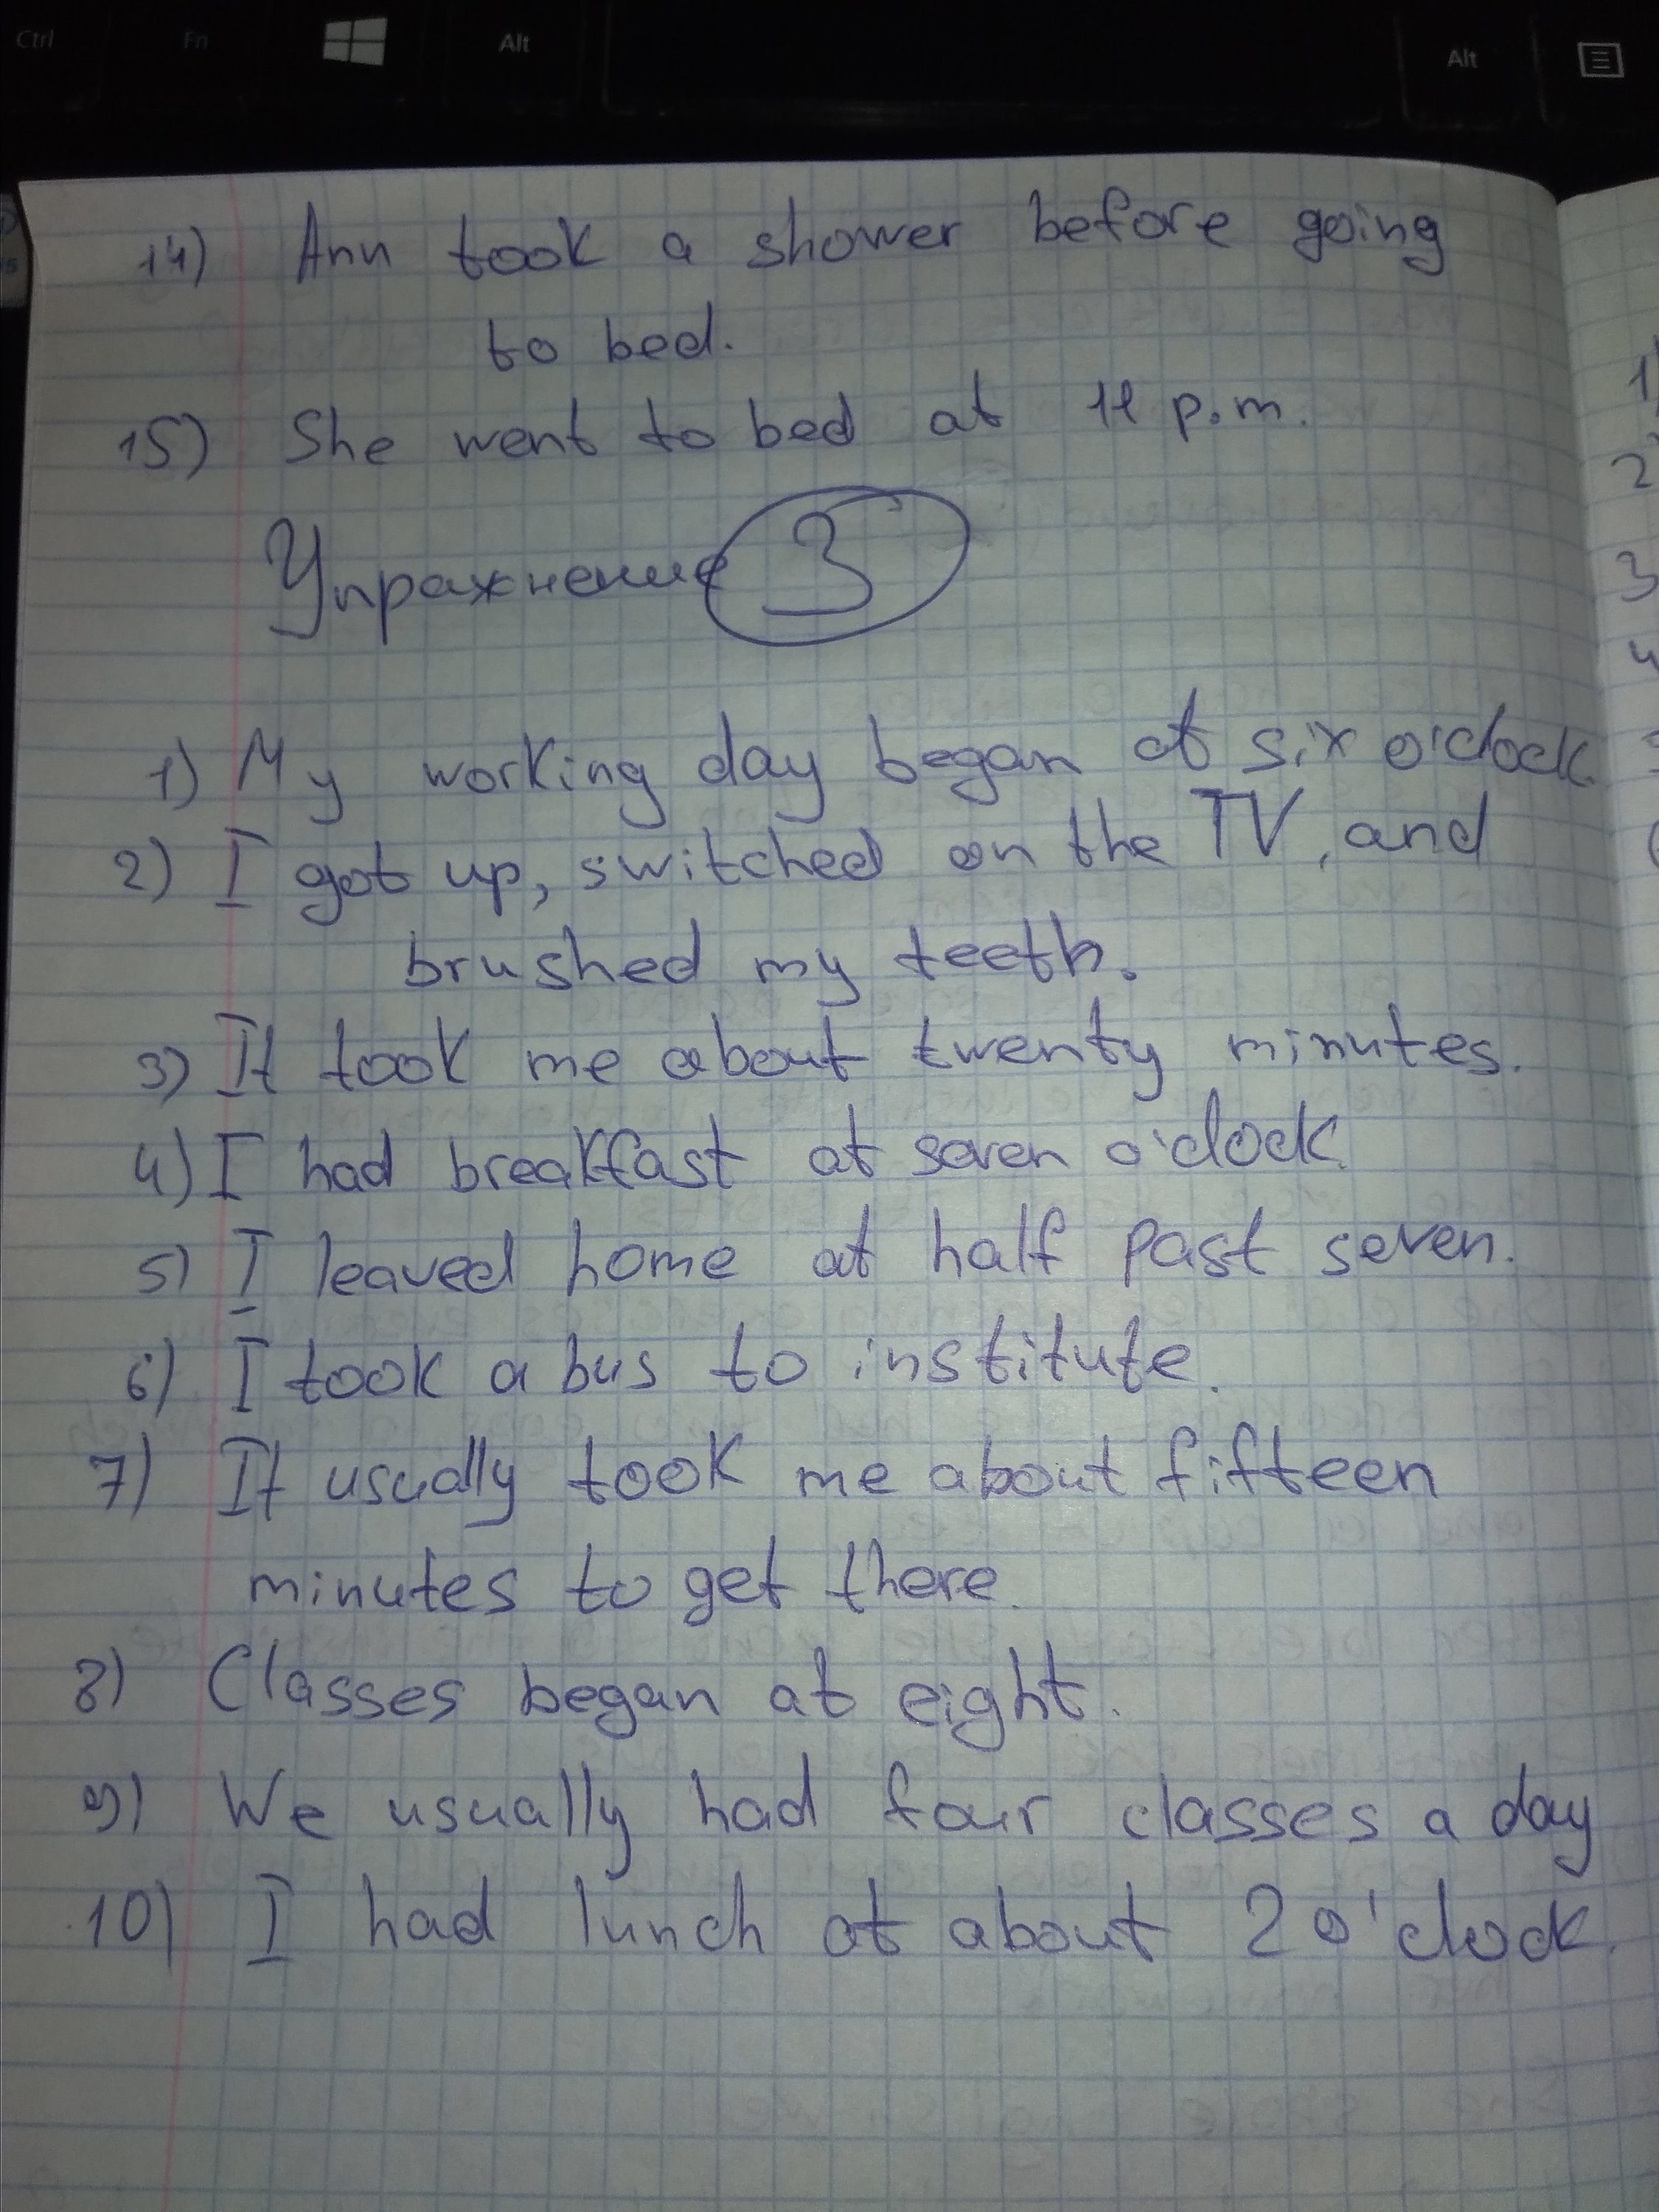 Ctrl Fn Alt Alt
14) Ann took a shower before going
to bed.
15) She went to bed at 11 p.m.
Упражнение 3
1) My working day began at six o'clock.
2) I got up, switched on the TV, and
brushed my teeth.
3) It took me about twenty minutes.
4) I had breakfast at seven o'clock.
5) I leaved home at half past seven.
6) I took a bus to institute.
7) It usually took me about fifteen
minutes to get there.
8) Classes began at eight.
9) We usually had four classes a day
10) I had lunch at about 2 o'clock.
1)
2
3
4